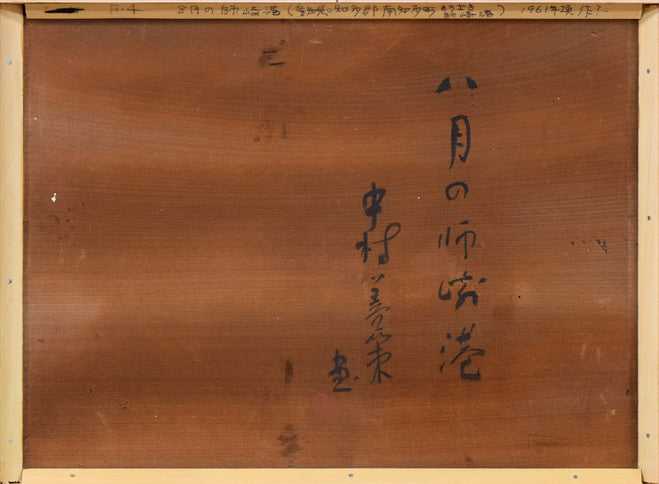 F.4 8月の師崎港(愛知県知多郡南知多町師崎港) 1961年頃作?
八月の師崎港
中村善策
画